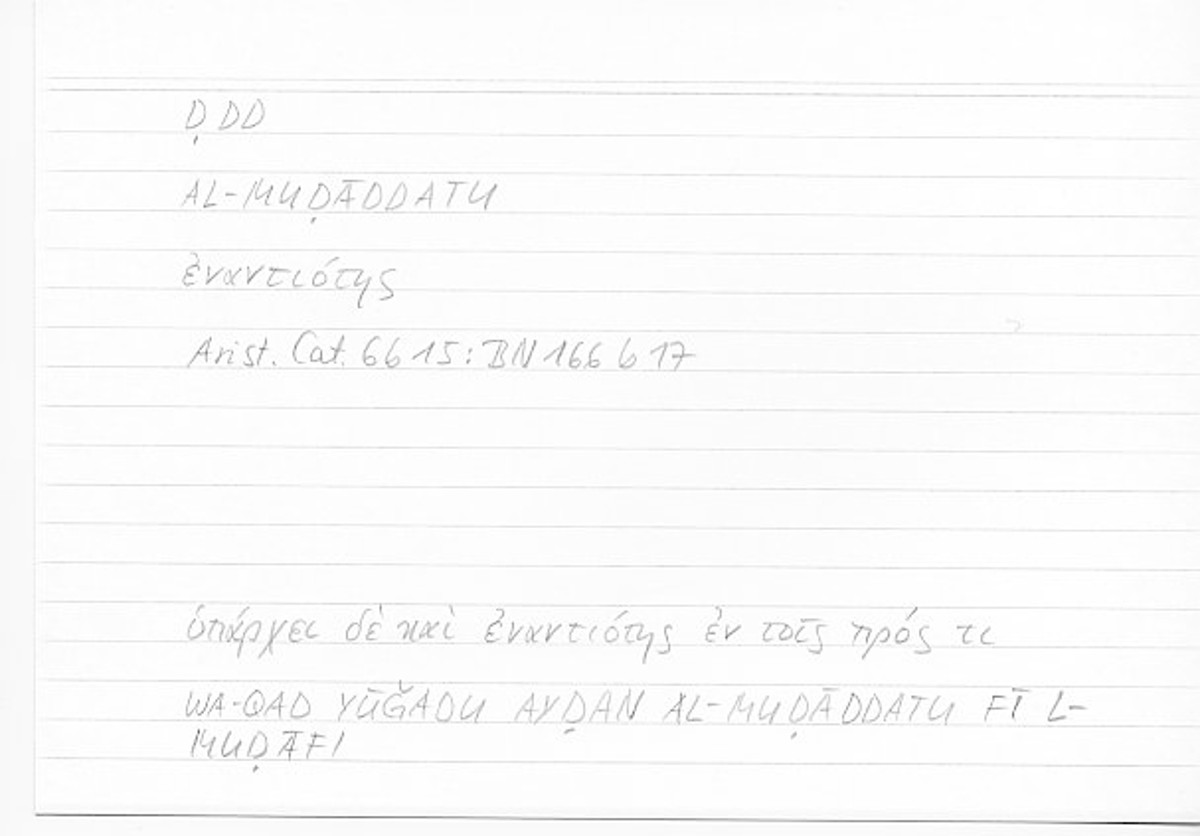 ḌDD
AL-MUḌĀDDATU
ἐναντιότης
Arist. Cat. 6b15: BN 166b17
ὑπάρχει δὲ καὶ ἐναντιότης ἐν τοῖς πρός τι
WA-QAD YŪǦADU AYḌAN AL-MUḌĀDDATU FĪ L-
MUḌĀFI